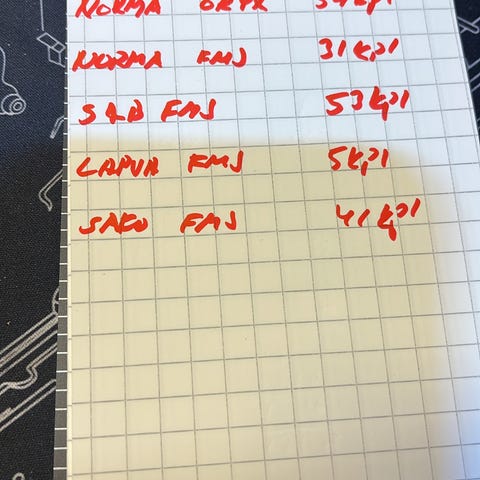 NORMA ORYX 54 kpl
NORMA FMJ 31 kpl
S&B FMJ 53 kpl
LAPUA FMJ 5 kpl
SAKO FMJ 41 kpl